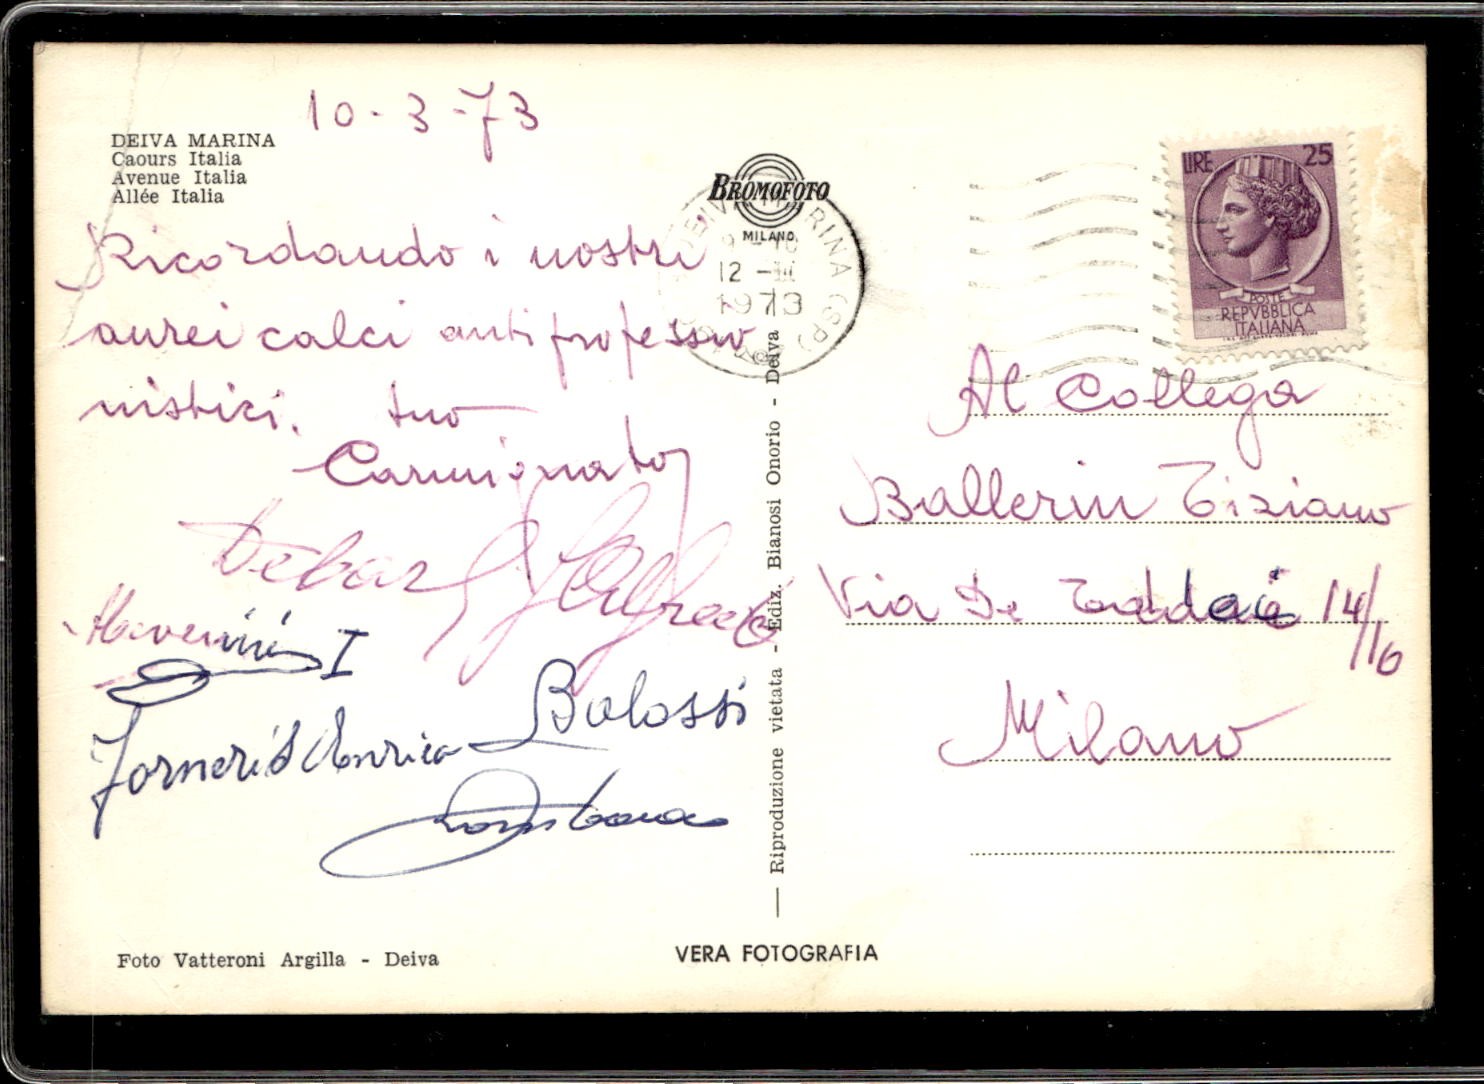 10-3-73
DEIVA MARINA
Caours Italia
Avenue Italia
Allée Italia
Ricordando i nostri
aurei calci antiprofessio
nistici. tuo
Carmionato
Debar Alfredo
I
Forneris Enrica
Balossi
BROMOFOTO
MILANO
DEIVA MARINA (SP)
12 -III
1973
LIRE 25
POSTE
REPVBBLICA
ITALIANA
Al Collega
Ballerin Tiziano
Via De Taddei 14/16
Milano
— Riproduzione vietata - Ediz. Bianosi Onorio - Deiva
Foto Vatteroni Argilla - Deiva
VERA FOTOGRAFIA